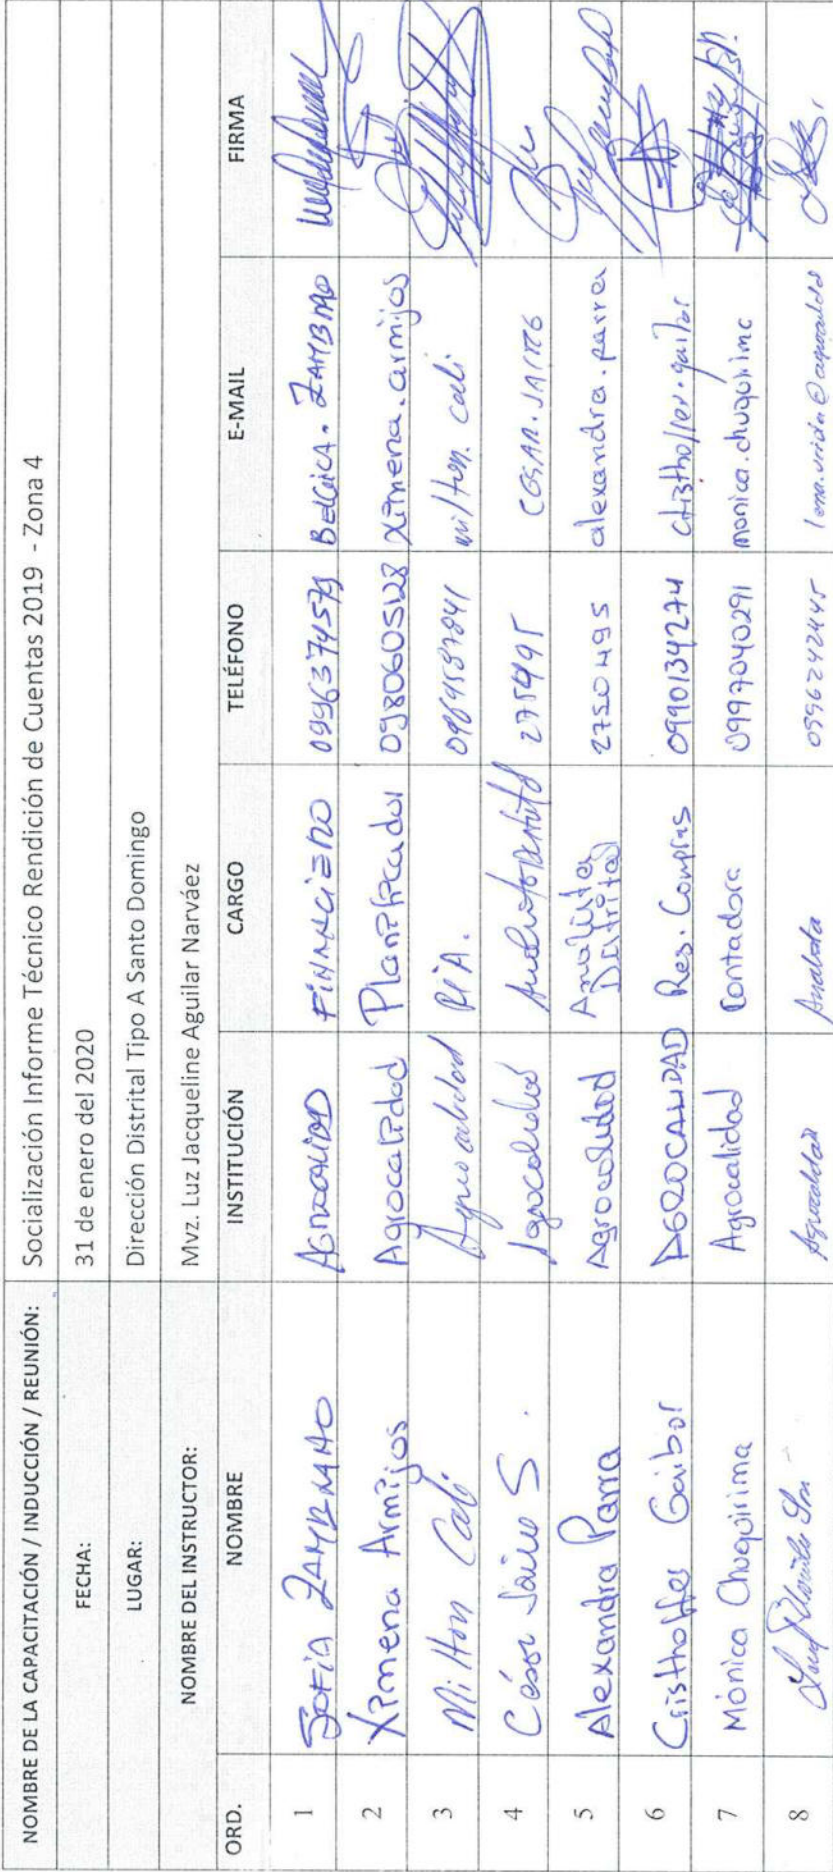 NOMBRE DE LA CAPACITACIÓN / INDUCCIÓN / REUNIÓN: Socialización Informe Técnico Rendición de Cuentas 2019 - Zona 4
FECHA: 31 de enero del 2020
LUGAR: Dirección Distrital Tipo A Santo Domingo
NOMBRE DEL INSTRUCTOR: Mvz. Luz Jacqueline Aguilar Narváez
ORD. NOMBRE INSTITUCIÓN CARGO TELÉFONO E-MAIL FIRMA
1 SOFIA ZAMBRANO AGROCALIDAD FINANCIERO 0996374579 BELGICA.ZAMBRANO
2 Ximena Armijos Agrocalidad Planificador 0980605128 Ximena.armijos
3 Milton Cali Agrocalidad P.I.A. 0969587841 milton.cali
4 César Jairo S. Agrocalidad 275495 CESAR.JAIRO
5 Alexandra Parra Agrocalidad Analista Distrital 2750495 alexandra.parra
6 Cristhoffer Gaibor AGROCALIDAD Res. Compras 0990134274 cristhoffer.gaibor
7 Mónica Chuquirima Agrocalidad Contadora 0997040291 monica.chuquirima
8 Agrocalidad Analista 0996242445